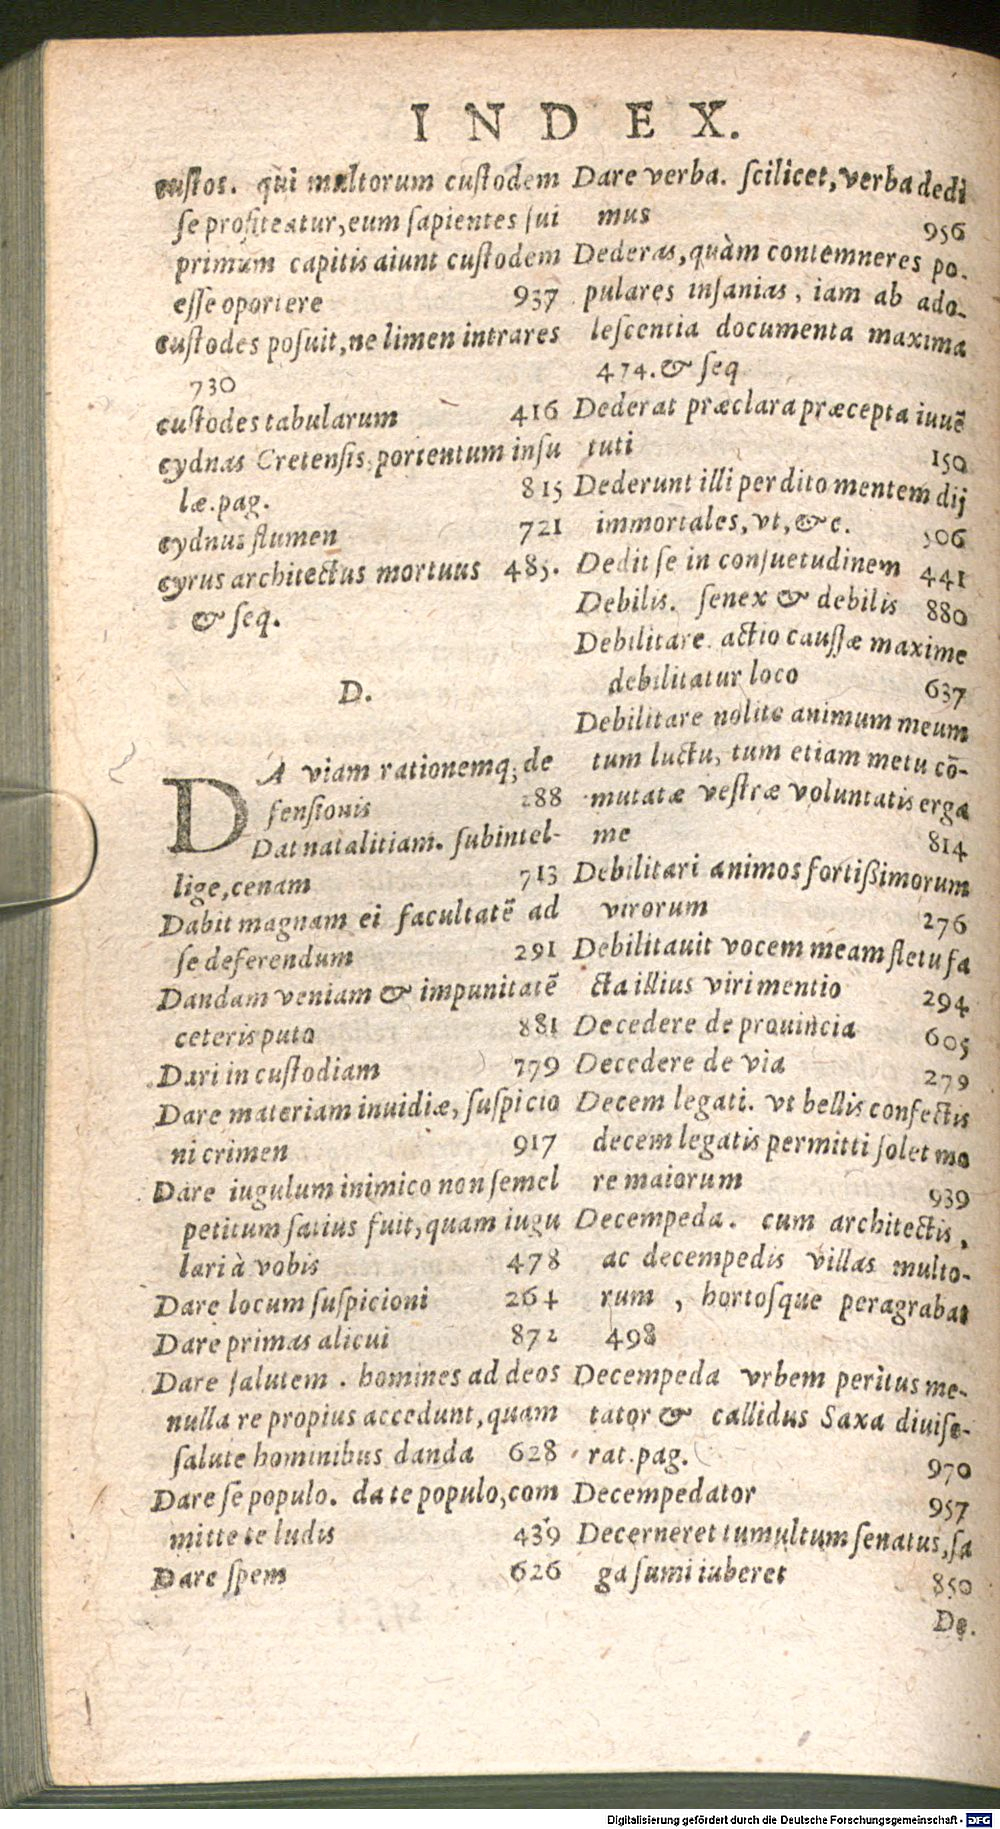 INDEX.
custos. qui multorum custodem
se profiteatur, eum sapientes sui
primùm capitis aiunt custodem
esse oportere 937
custodes posuit, ne limen intrares
730
custodes tabularum 416
cydnas Cretensis, portentum insu
læ. pag. 815
cydnus flumen 721
cyrus architectus mortuus 485.
& seq.
D.
DA viam rationemq; de
fensionis 288
Dat natalitiam. subintel-
lige, cenam 713
Dabit magnam ei facultatē ad
se deferendum 291
Dandam veniam & impunitatē
ceteris puto 881
Dari in custodiam 779
Dare materiam inuidiæ, suspicio
ni crimen 917
Dare iugulum inimico non semel
petitum satius fuit, quam iugu
lari à vobis 478
Dare locum suspicioni 264
Dare primas alicui 872
Dare salutem. homines ad deos
nulla re propius accedunt, quam
salute hominibus danda 628
Dare se populo. da te populo, com
mitte te ludis 439
Dare spem 626
Dare verba. scilicet, verba dedi
mus 956
Dederas, quàm contemneres po-
pulares insanias, iam ab ado-
lescentia documenta maxima
474. & seq
Dederat præclara præcepta iuuē
tuti 150
Dederunt illi perdito mentem dij
immortales, vt, & c. 506
Dedit se in consuetudinem 441
Debilis. senex & debilis 880
Debilitare. actio caussæ maxime
debilitatur loco 637
Debilitare nolite animum meum
tum luctu, tum etiam metu cō-
mutatæ vestræ voluntatis erga
me 814
Debilitari animos fortißimorum
virorum 276
Debilitauit vocem meam fletu fa
cta illius viri mentio 294
Decedere de prouincia 605
Decedere de via 279
Decem legati. vt bellis confectis
decem legatis permitti solet mo
re maiorum 939
Decempeda. cum architectis,
ac decempedis villas multo-
rum, hortosque peragrabat
498
Decempeda vrbem peritus me-
tator & callidus Saxa diuise-
rat. pag. 970
Decempedator 957
Decerneret tumultum senatus, sa
ga sumi iuberet 850
De.
Digitalisierung gefördert durch die Deutsche Forschungsgemeinschaft - DFG